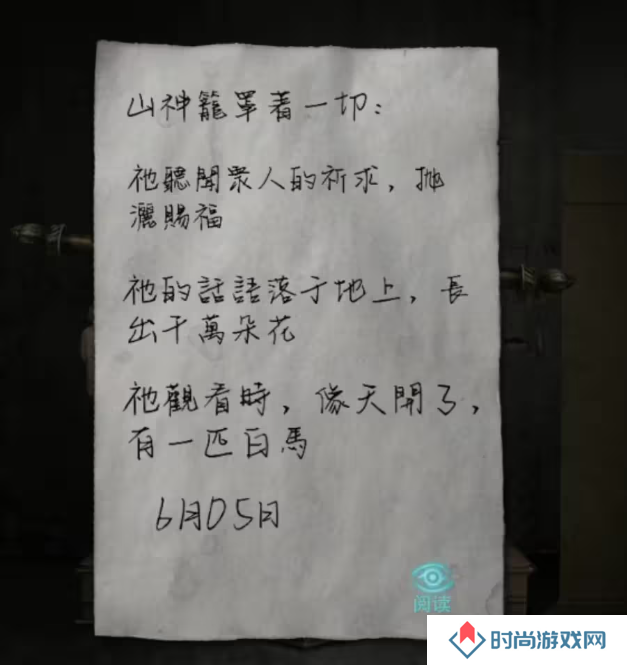 山神籠罩着一切：
祂聽聞眾人的祈求，拋
灑賜福
祂的話語落于地上，長
出千萬朵花
祂觀看時，像天開了，
有一匹白馬
6月05日
阅读
时尚游戏网